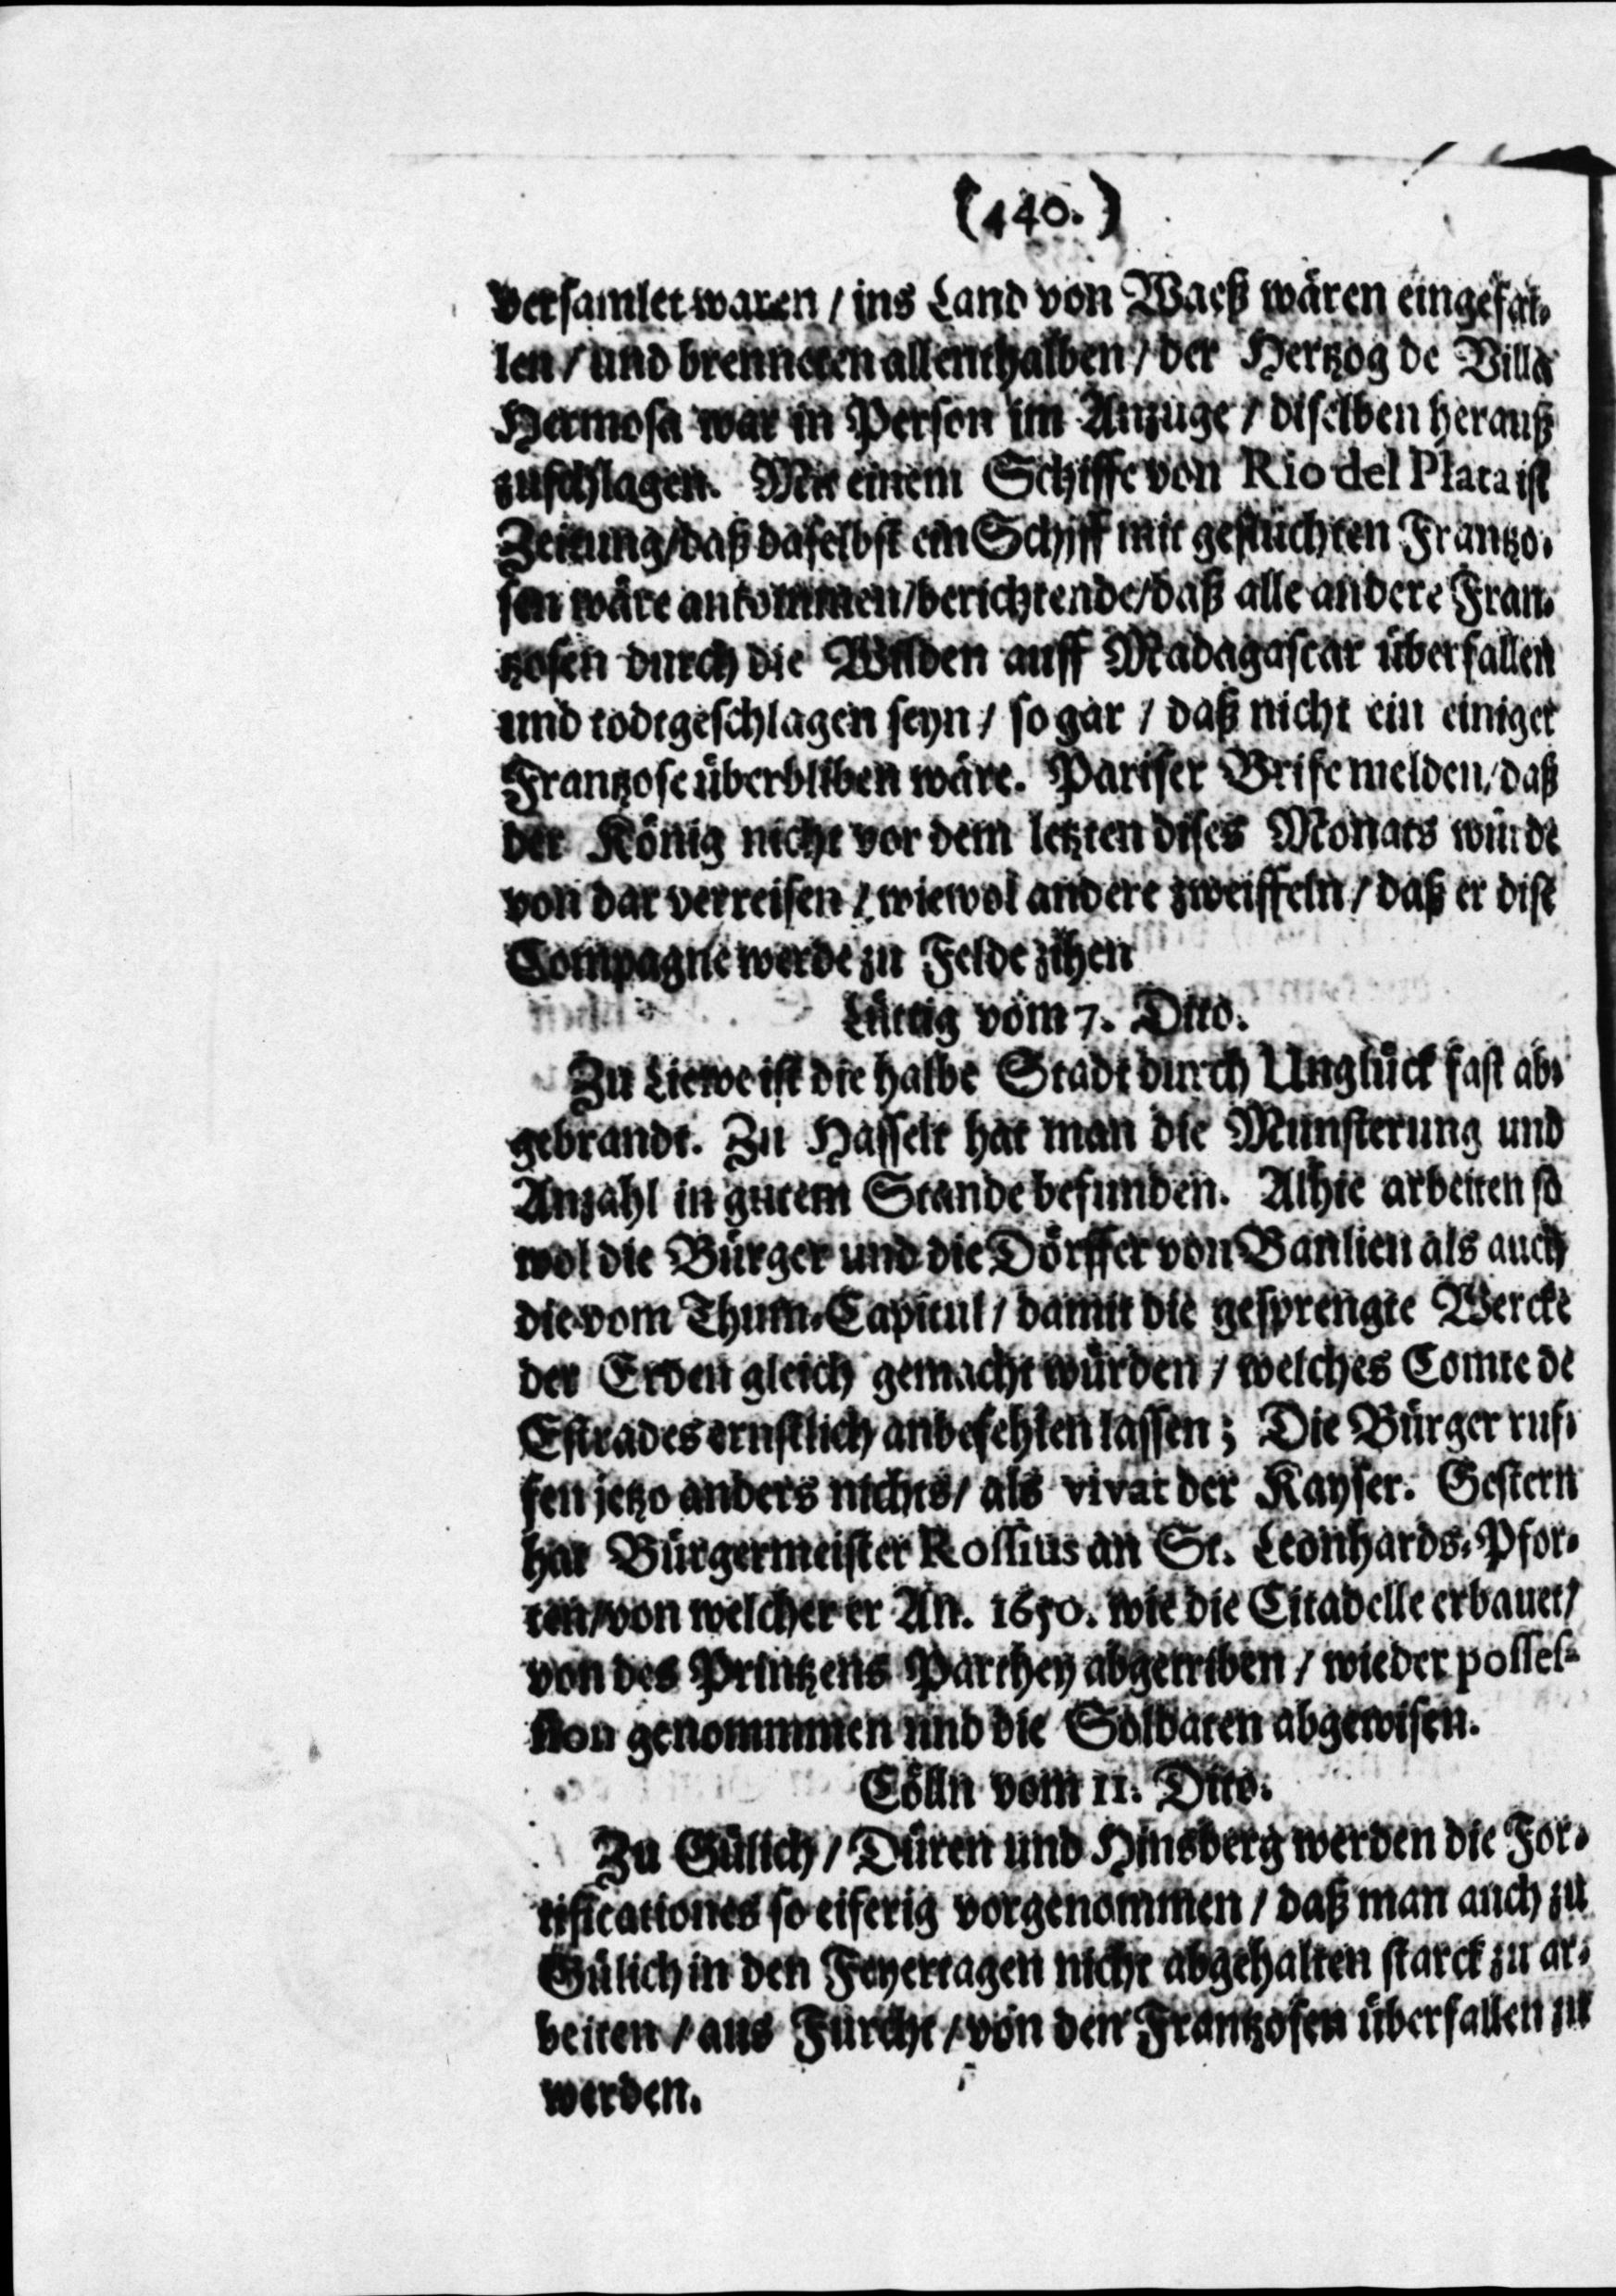 (440.)
versamlet waren / ins Land von Waeß wären eingefal-
len / und brenneten allenthalben / der Hertzog de Villa
Hermosa war in Person im Anzuge / diselben herauß
zuschlagen. Mit einem Schiffe von Rio del Plata ist
Zeitung / daß daselbst ein Schiff mit geflüchten Frantzo-
sen wäre ankommen / berichtende / daß alle andere Fran-
tzosen durch die Wilden auff Madagascar überfallen
und todtgeschlagen seyn / so gar / daß nicht ein einiger
Frantzose überbliben wäre. Pariser Brife melden / daß
der König nicht vor dem letzten dises Monats würde
von dar verreisen / wiewol andere zweiffeln / daß er dise
Compagne werde zu Felde zihen
Lüttig vom 7. Dito.
Zu Liewe ist die halbe Stadt durch Unglück fast ab-
gebrandt. Zu Hasselt hat man die Munsterung und
Anzahl in gutem Stande befunden. Alhie arbeiten so
wol die Bürger und die Dörffer von Banlien als auch
die vom Thum-Capitul / damit die gesprengte Wercke
der Erden gleich gemacht würden / welches Comte de
Estrades ernstlich anbefehlen lassen; Die Bürger ruf-
fen jetzo anders nichts / als vivat der Kayser. Gestern
hat Bürgermeister Rossius an St. Leonhards-Pfor-
ten / von welcher er An. 1650. wie die Citadelle erbauet /
von des Printzens Parthey abgetriben / wieder posses-
sion genommmen und die Soldaten abgewisen.
Cölln vom 11. Dito.
Zu Gülich / Düren und Hinsberg werden die For-
tificationes so eiferig vorgenommen / daß man auch zu
Gülich in den Feyertagen nicht abgehalten starck zu ar-
beiten / aus Furcht / von den Frantzosen überfallen zu
werden.